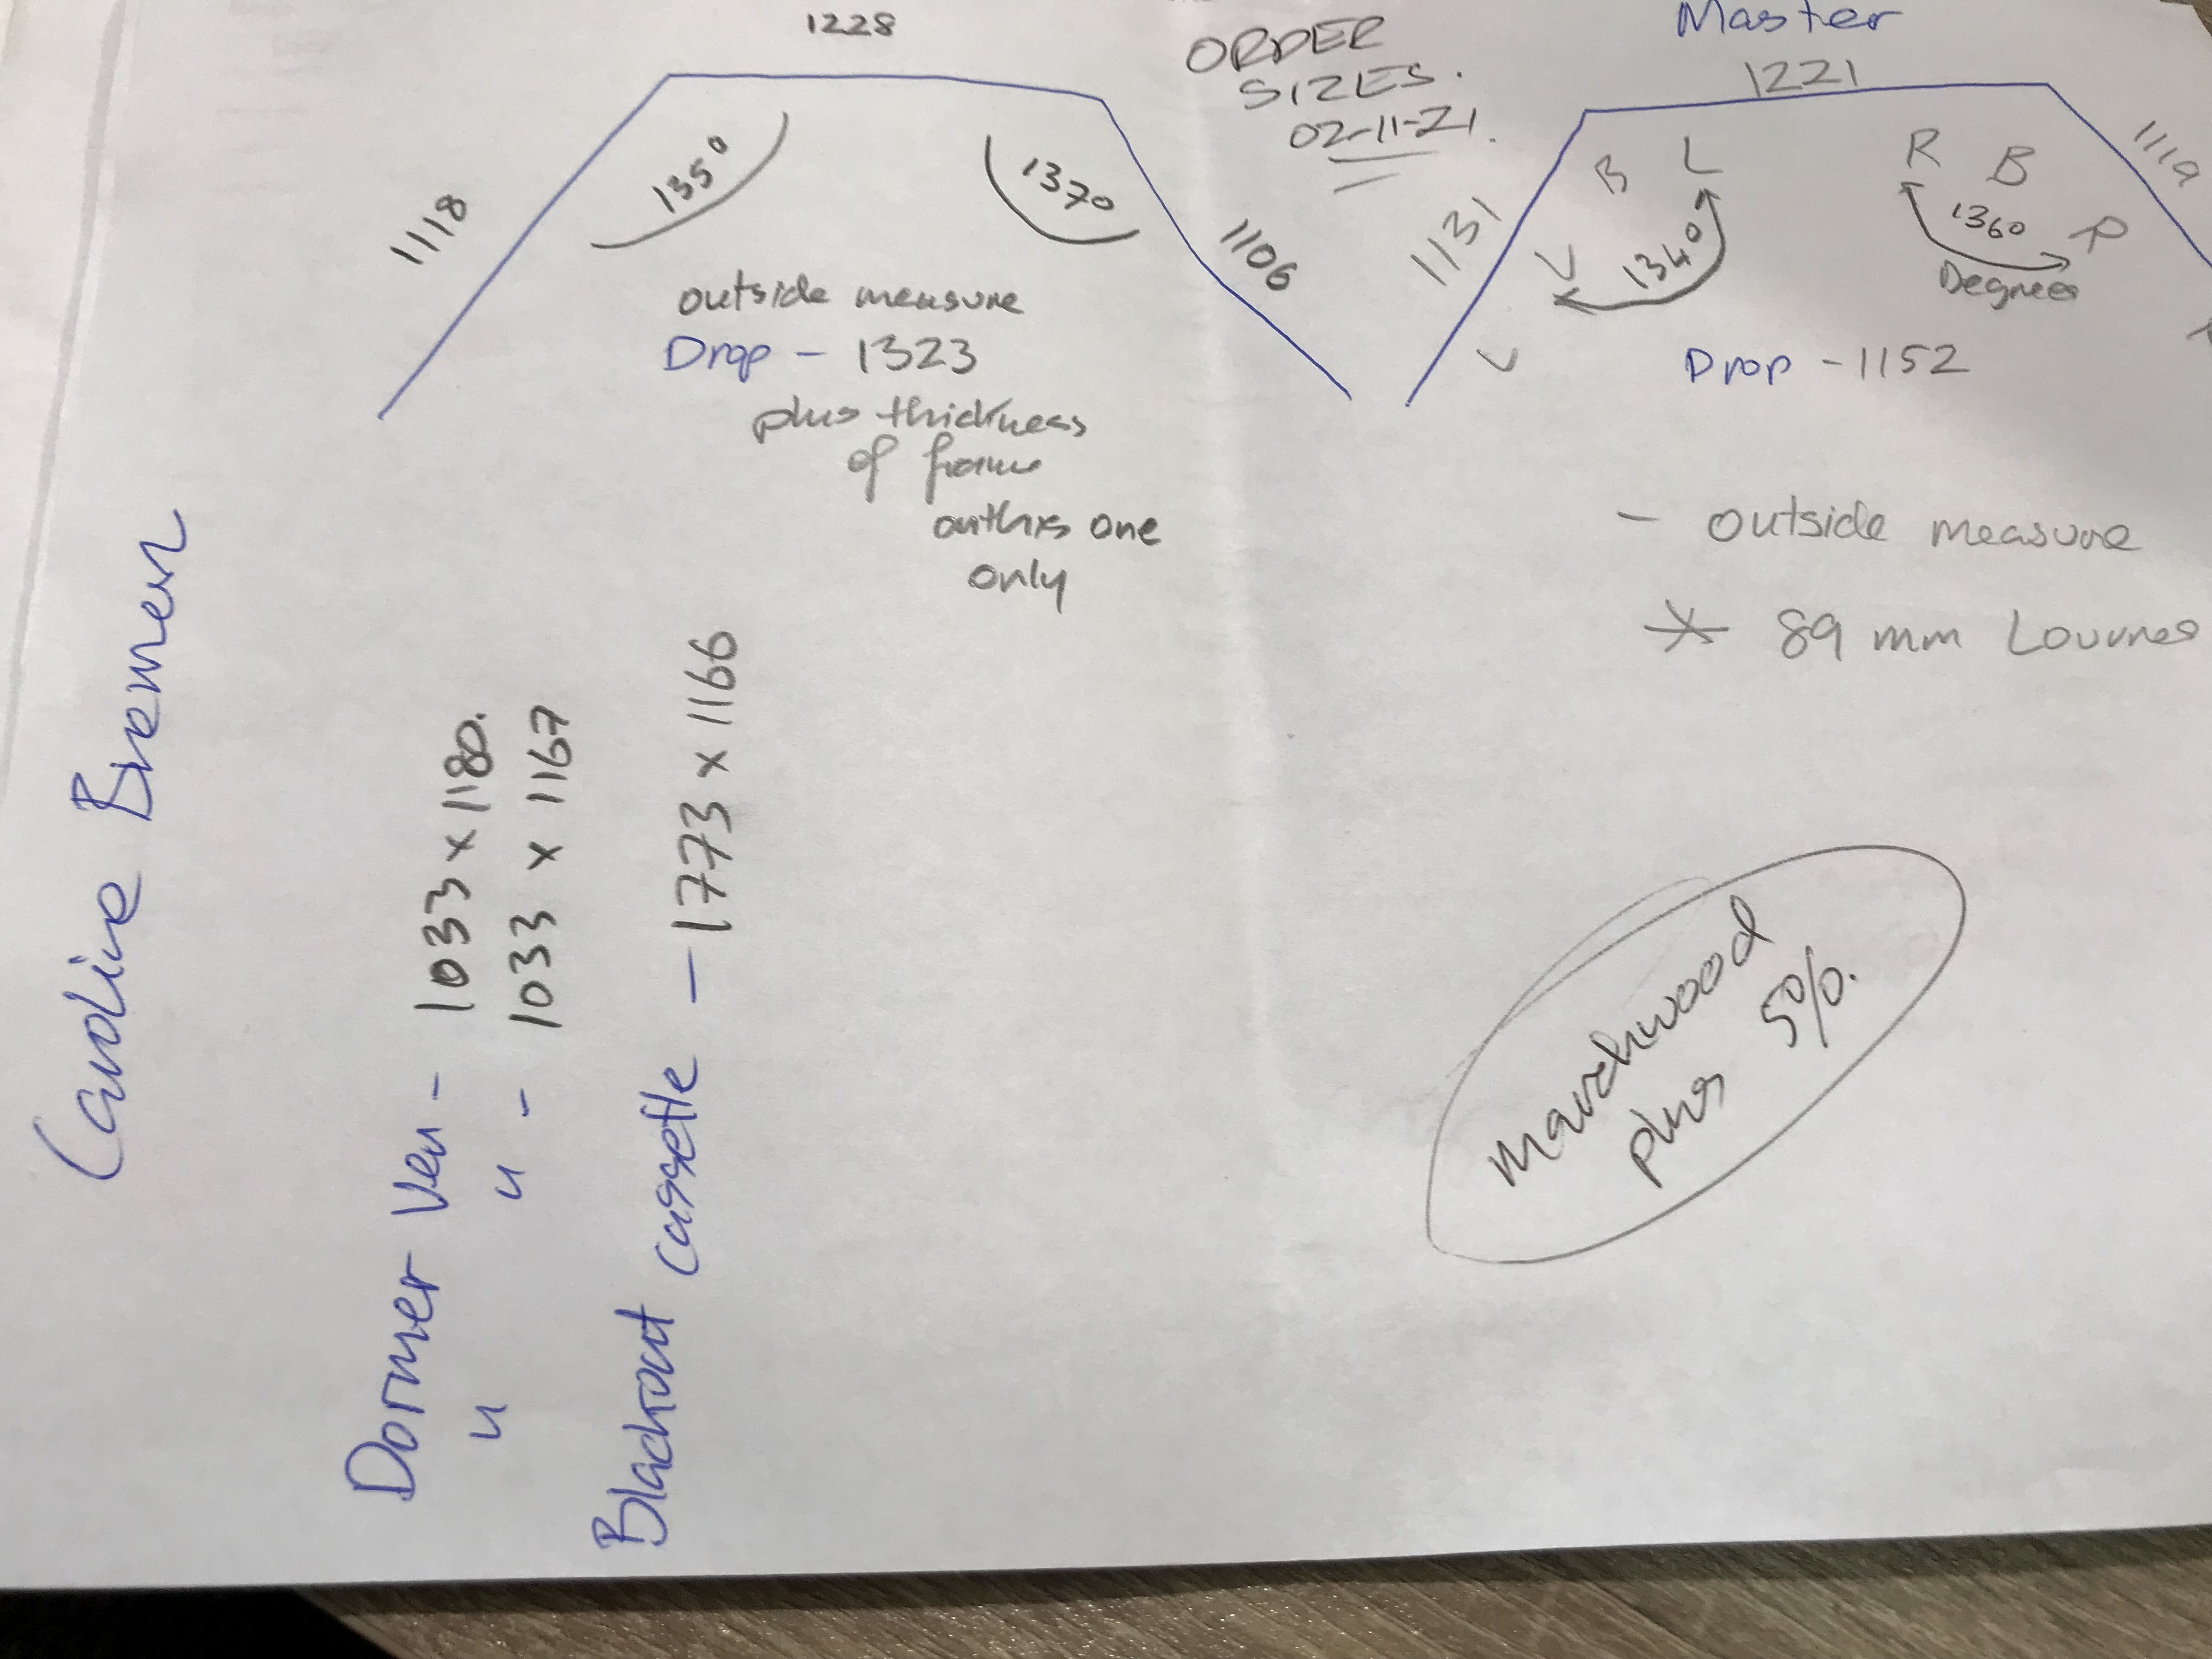 1228
1118
135°
137°
1106
outside measure
Drop - 1323
plus thickness
of frame
onthis one
only
ORDER
SIZES.
02-11-21.
Master
1221
1131
1119
B L
R B
R
L
L
134°
136°
Degrees
Drop - 1152
- outside measure
* 89 mm Louvres
Caroline Bremen
Dormer Ven - 1033 x 1180.
" " - 1033 x 1167
Blackout cassette - 1773 x 1166
Marchwood
plus 5%.